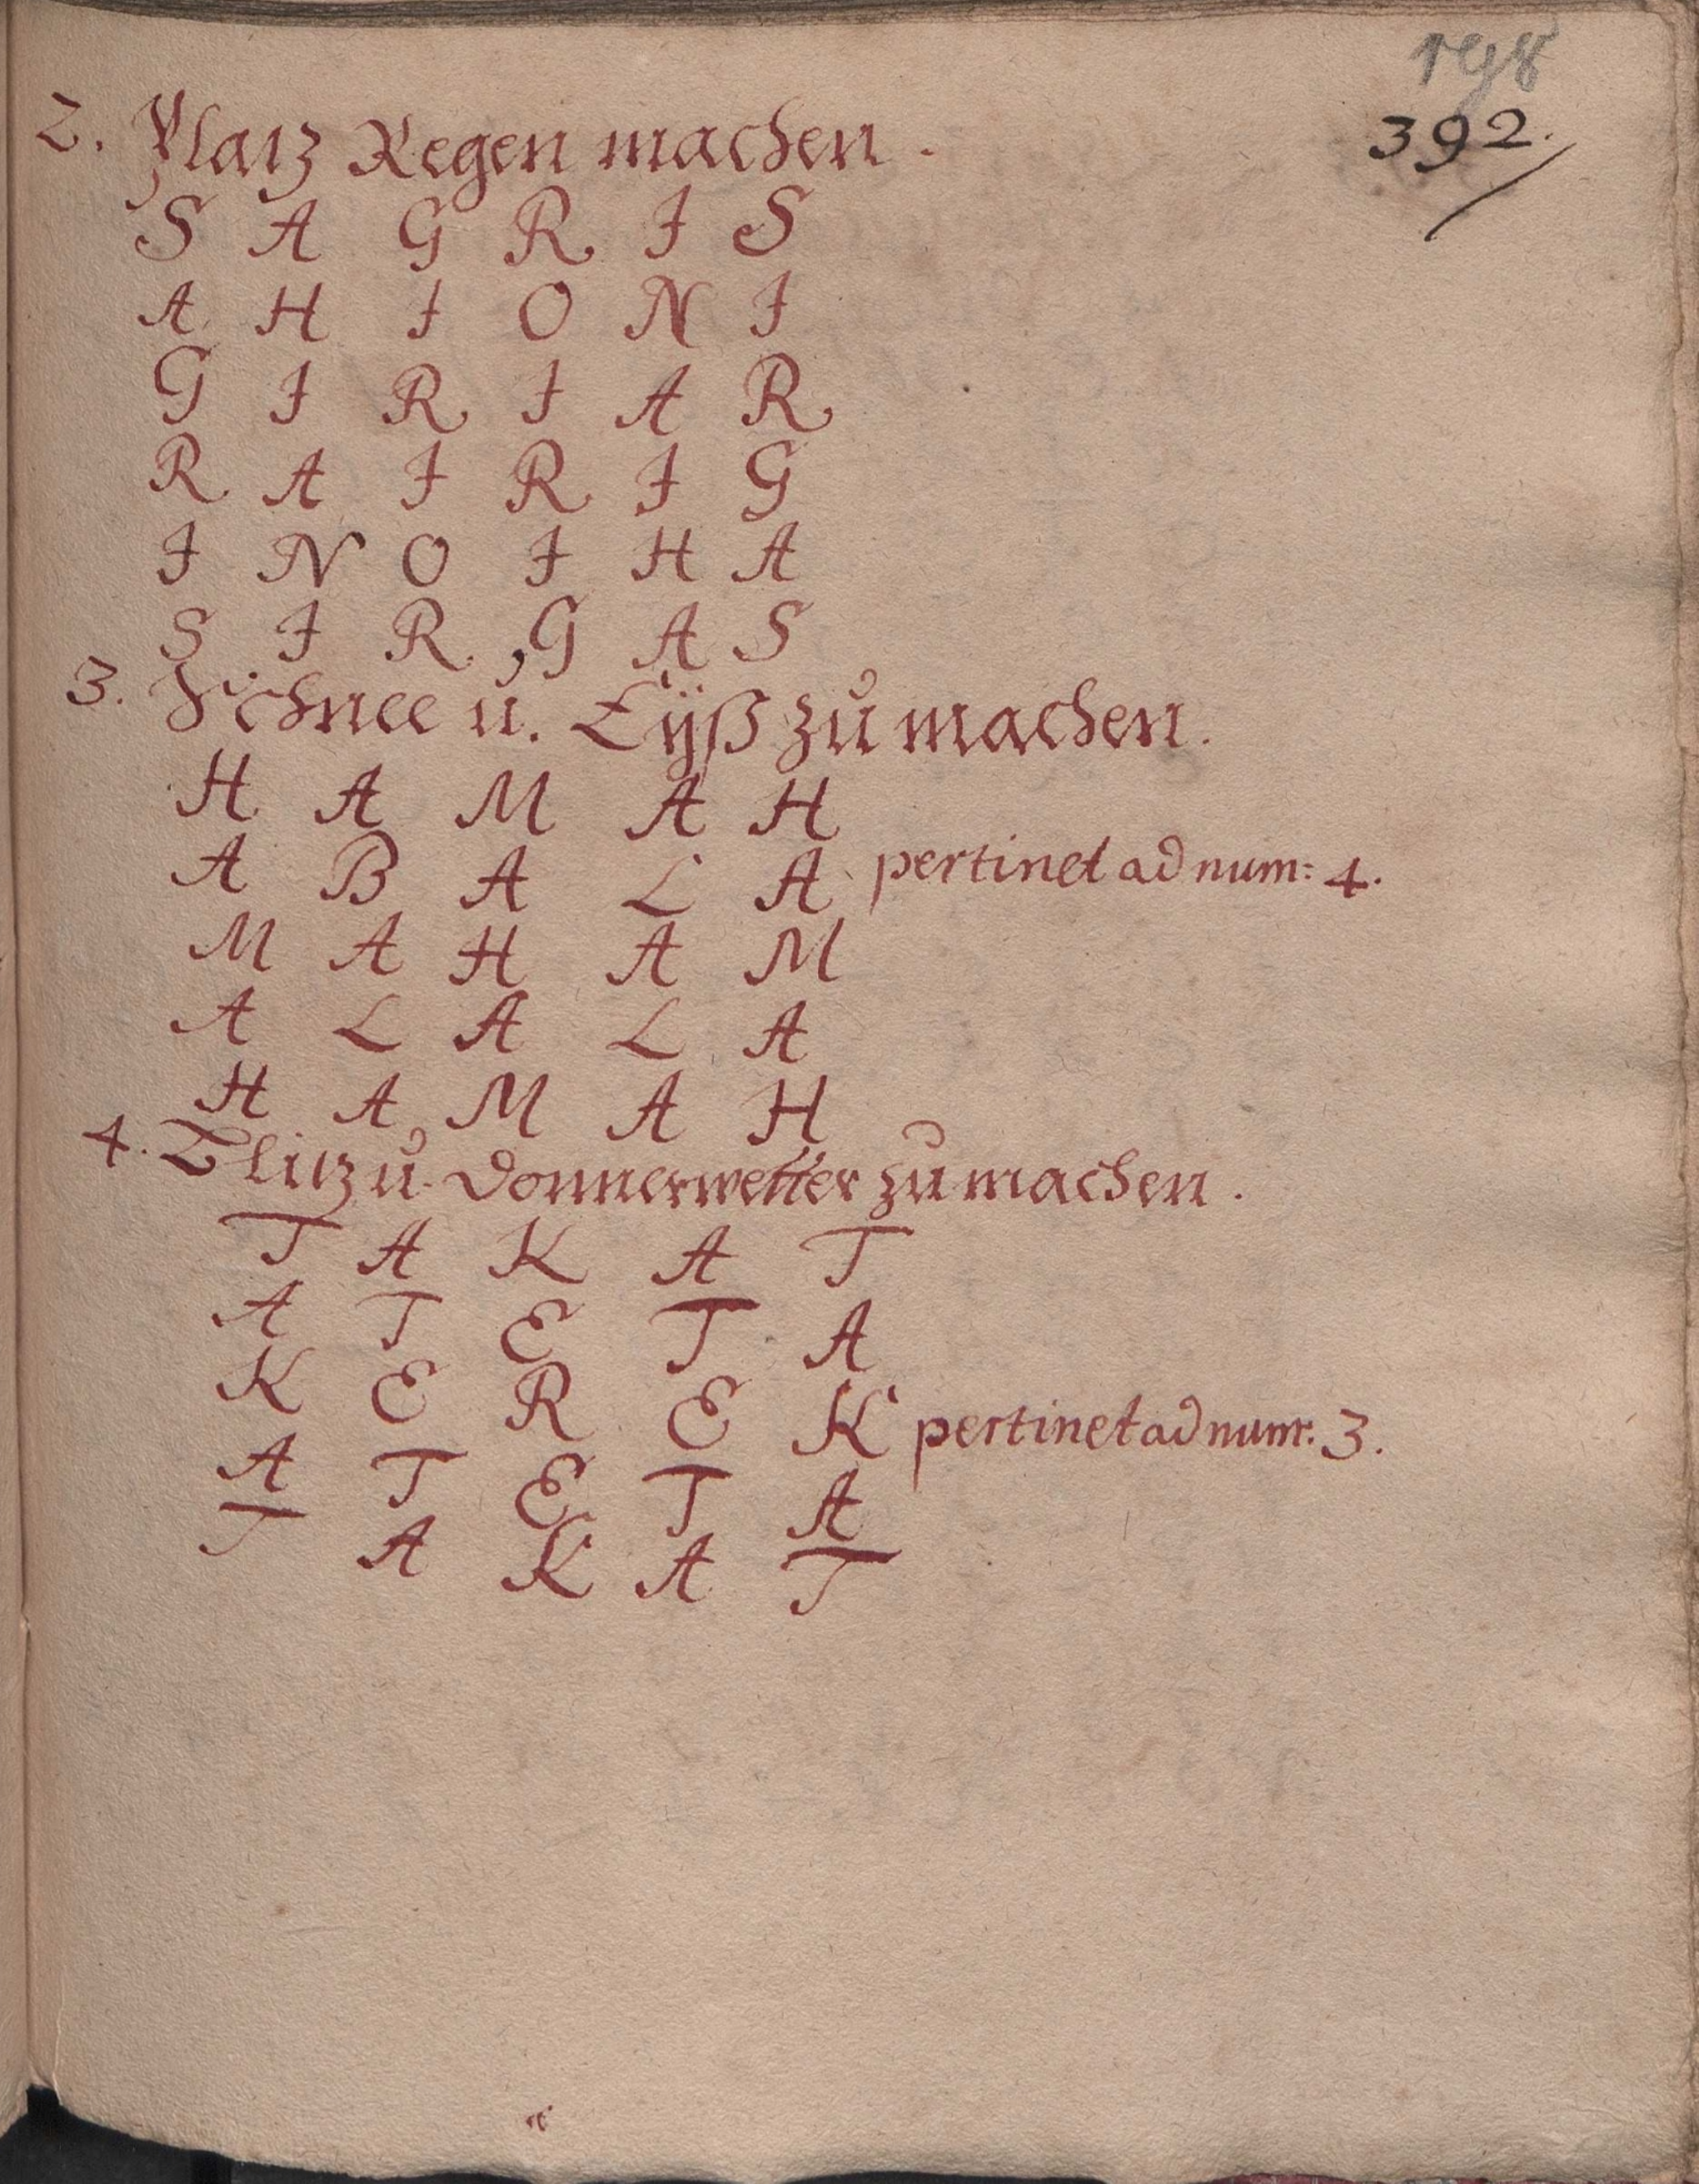 198
392.
2. Platz Regen machen.
S A G R I S
A H I O N I
G I R I A R
R A I R I G
I N O I H A
S I R G A S
3. Schnee u. Eÿß zu machen.
H A M A H
A B A L A pertinet ad num: 4.
M A H A M
A L A L A
H A M A H
4. Blitz u. Donnerwetter zu machen.
T A K A T
A T E T A
K E R E K pertinet ad num: 3.
A T E T A
T A K A T